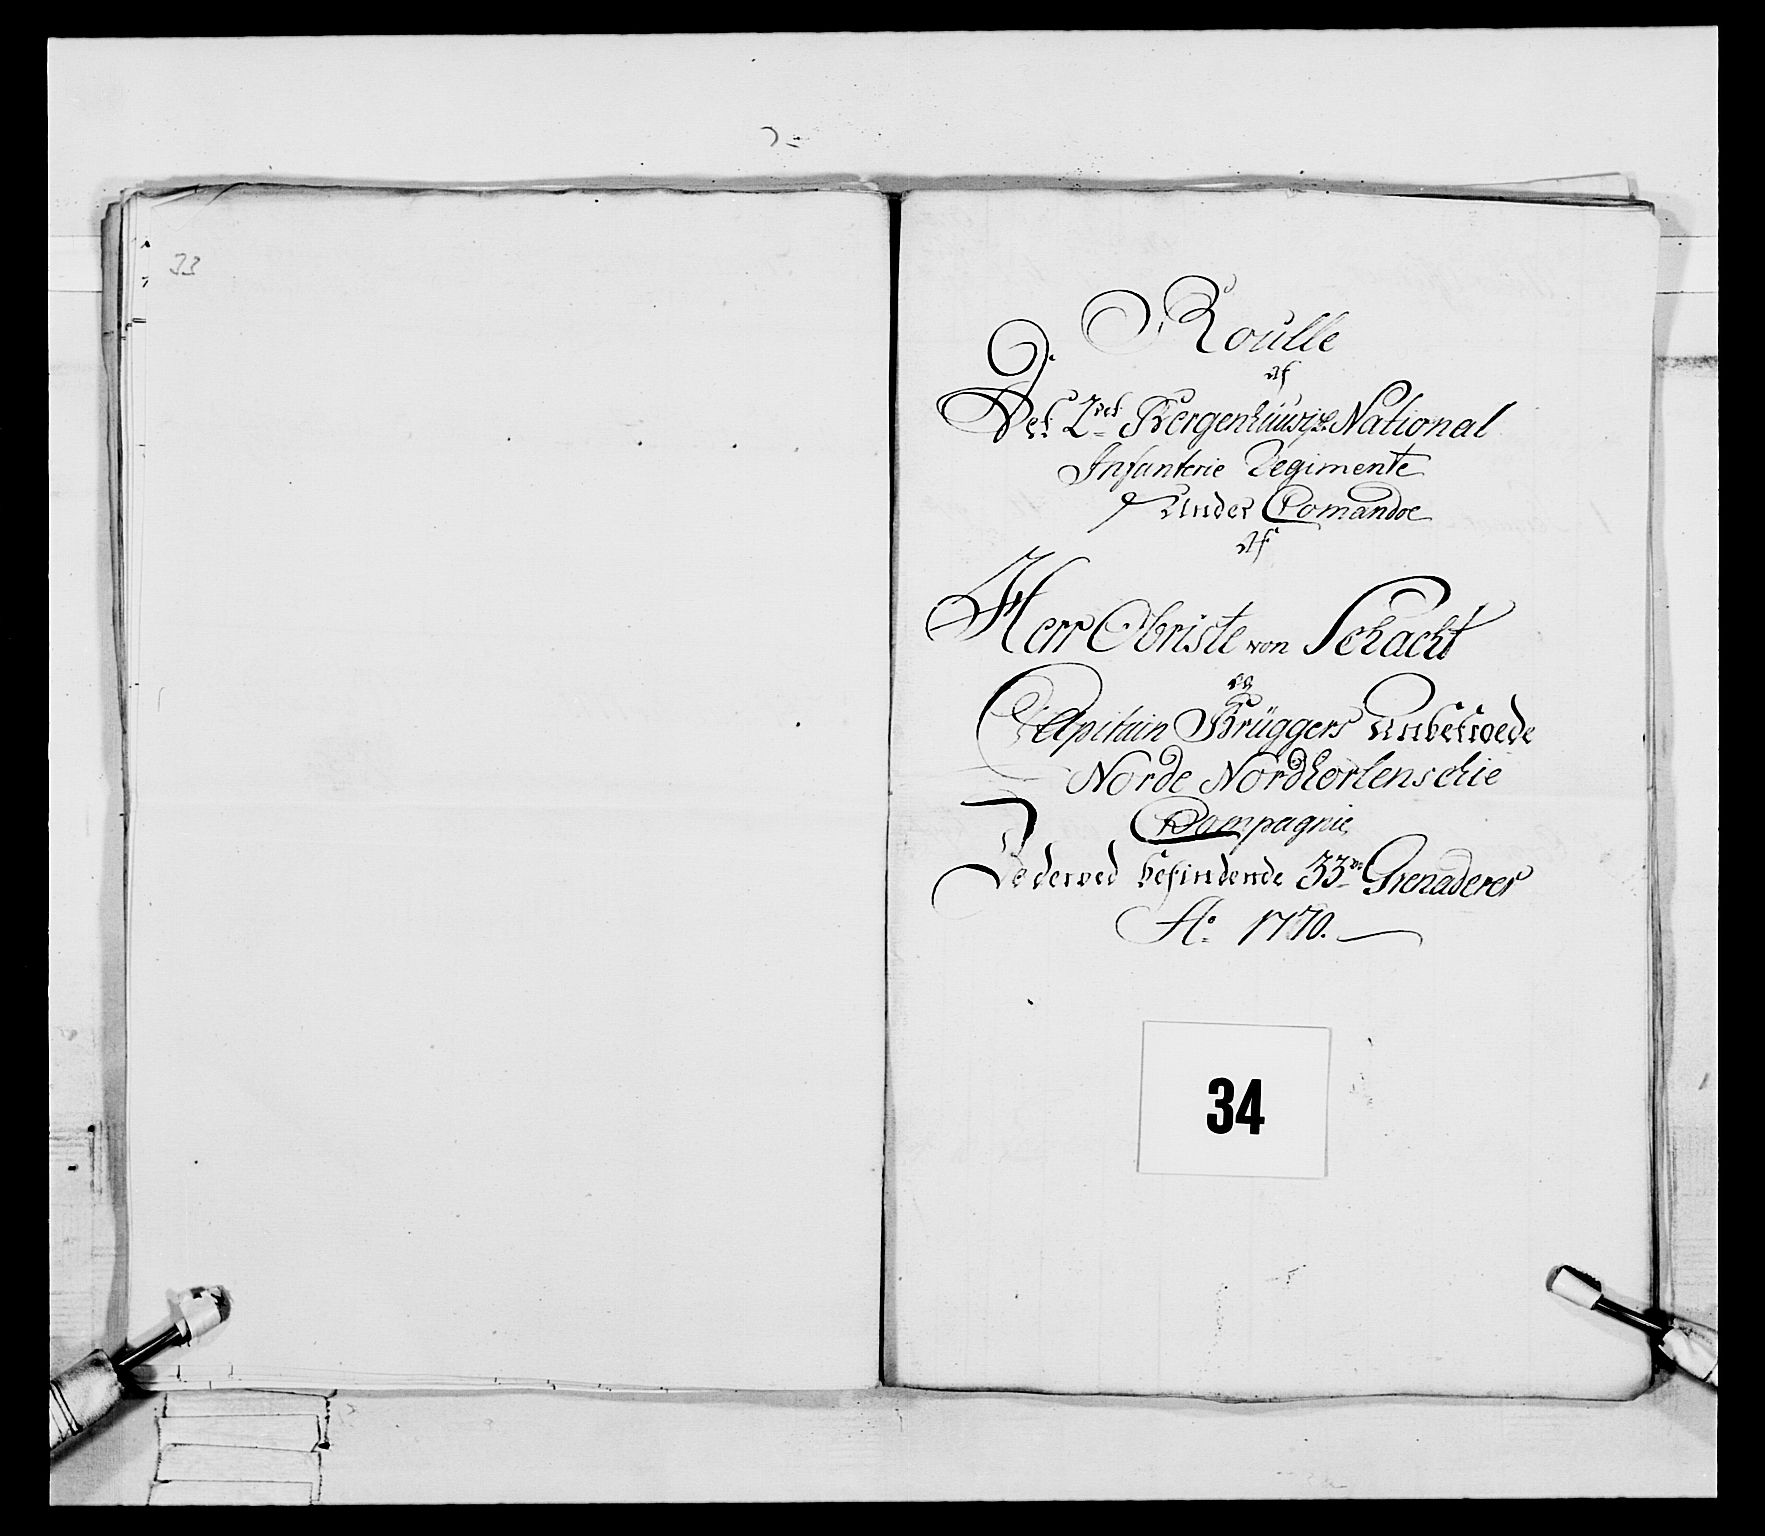 33
Roulle
af
Det 2det Bergenhuusiske National
Infanterie Regimente
Under Comandoe
Af
Herr Obriste von Schacht
og
Capitain Brüggers Anbetroede
Norde Nordhorlenschie
Compagnie
Dederved befindende 33ve Grenaderer
Ao 1770.
34